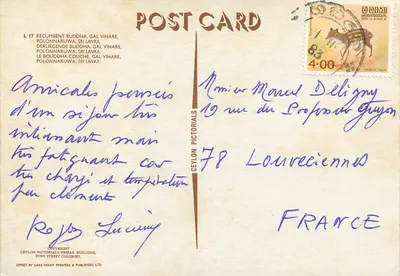 POST CARD
L 17 RECUMBENT BUDDHA, GAL VIHARE,
POLONNARUWA, SRI LANKA.
DERLIEGENDE BUDDHA, GAL VIHARE,
POLONNARUWA, SRI LANKA.
LE BOUDDHA COUCHE, GAL VIHARE,
POLONNARUWA, SRI LANKA.
Amicales pensées
d'un séjour très
intéressant mais
très fatigant car
très chargé et température
peu clémente
Roger Lucien
COPYRIGHT
CEYLON PICTORIALS, HEMAS BUILDING,
YORK STREET COLOMBO.
OFFSET BY LAKE HOUSE PRINTERS & PUBLISHERS LTD
CEYLON PICTORIALS
4·00
83
Monsieur Marcel Deligny
19 rue du Professeur Guyon
78 Louveciennes
FRANCE